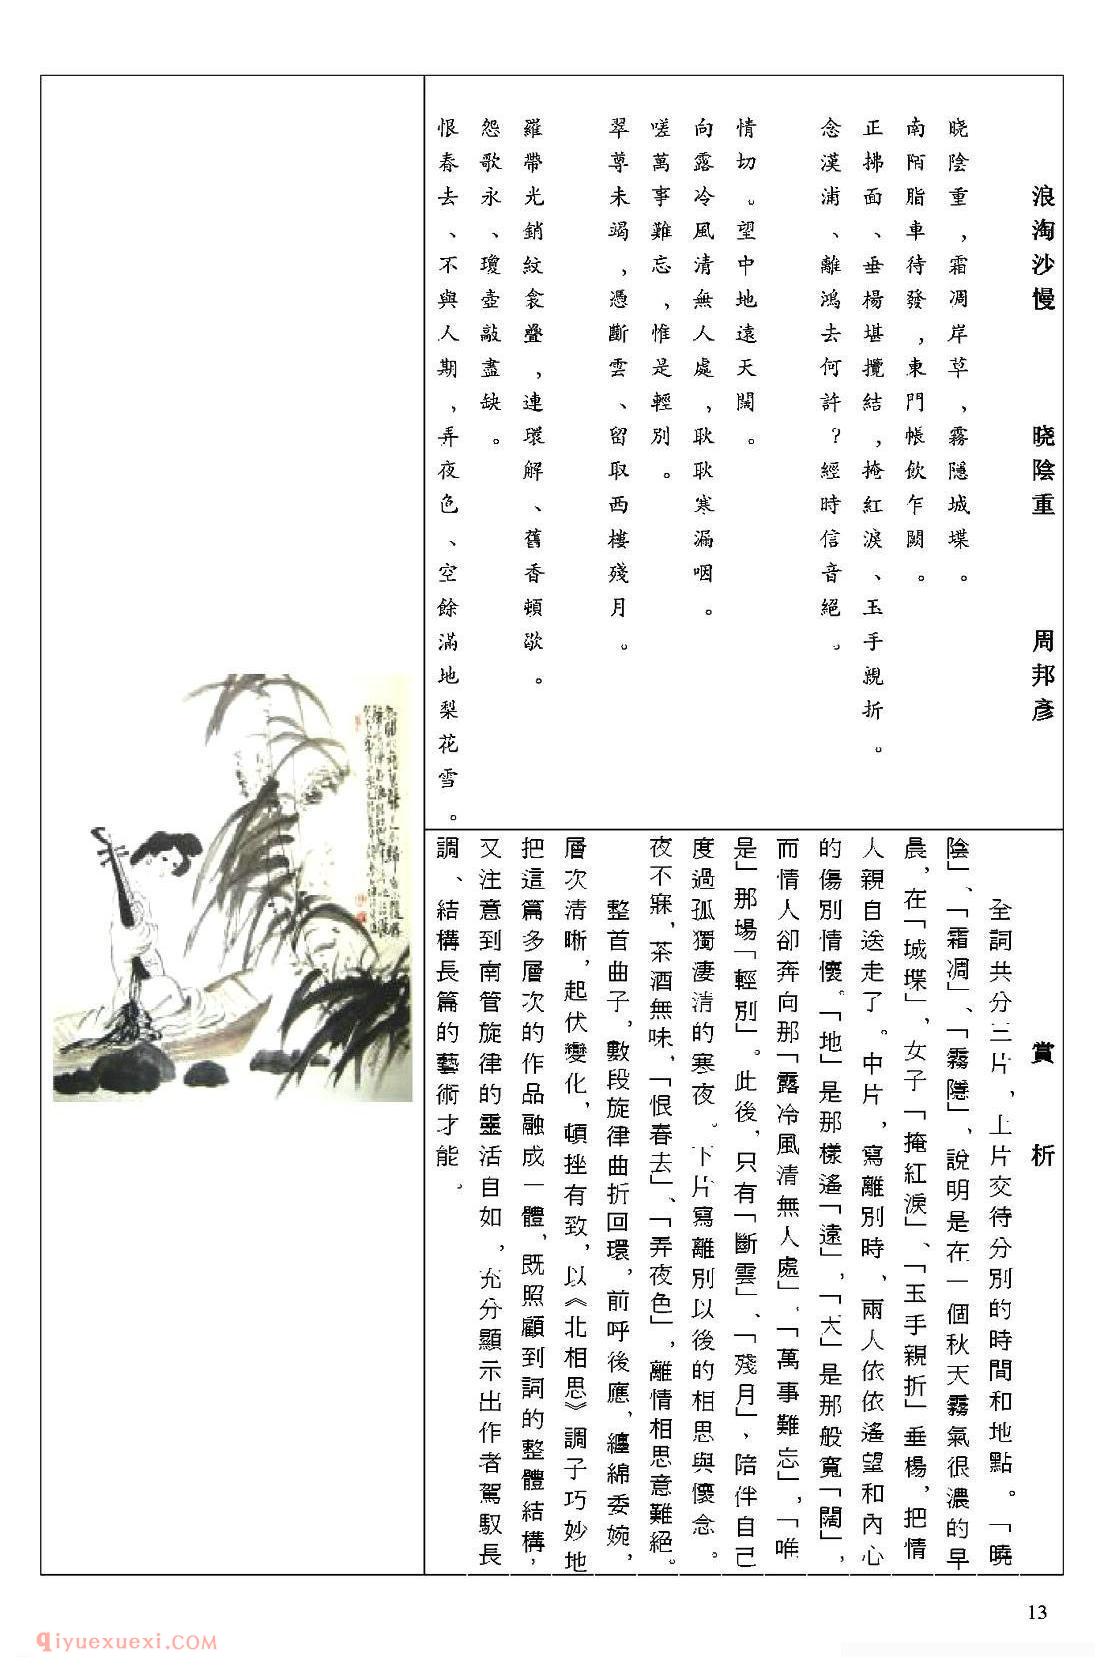 浪淘沙慢　晓陰重　周邦彥
晓陰重，霜凋岸草，霧隱城堞。
南陌脂車待發，東門帳飲乍闋。
正拂面、垂楊堪攬結，掩紅淚、玉手親折。
念漢浦、離鴻去何許？經時信音絕。
情切。望中地遠天闊。
向露冷風清無人處，耿耿寒漏咽。
嗟萬事難忘，惟是輕別。
翠尊未竭，憑斷雲、留取西樓殘月。
羅帶光銷紋衾疊，連環解、舊香頓歇。
怨歌永、瓊壺敲盡缺。
恨春去、不與人期，弄夜色、空餘滿地梨花雪。
賞析
全詞共分三片，上片交待分別的時間和地點。「曉
陰」、「霜凋」、「霧隱」，說明是在一個秋天霧氣很濃的早
晨，在「城堞」，女子「掩紅淚」、「玉手親折」垂楊，把情
人親自送走了。中片，寫離別時、兩人依依遙望和內心
的傷別情懷。「地」是那樣遙「遠」，「天」是那般寬「闊」，
而情人卻奔向那「露冷風清無人處」．「萬事難忘」，「唯
是」那場「輕別」。此後，只有「斷雲」、「殘月」，陪伴自己
度過孤獨淒清的寒夜。下片寫離別以後的相思與懷念。
夜不寐，茶酒無味，「恨春去」、「弄夜色」，離情相思意難絕。
整首曲子，數段旋律曲折回環，前呼後應，纏綿委婉，
層次清晰，起伏變化，頓挫有致，以《北相思》調子巧妙地
把這篇多層次的作品融成一體，既照顧到詞的整體結構，
又注意到南管旋律的靈活自如，充分顯示出作者駕馭長
調、結構長篇的藝術才能。
13
qiyuexuexi.COM